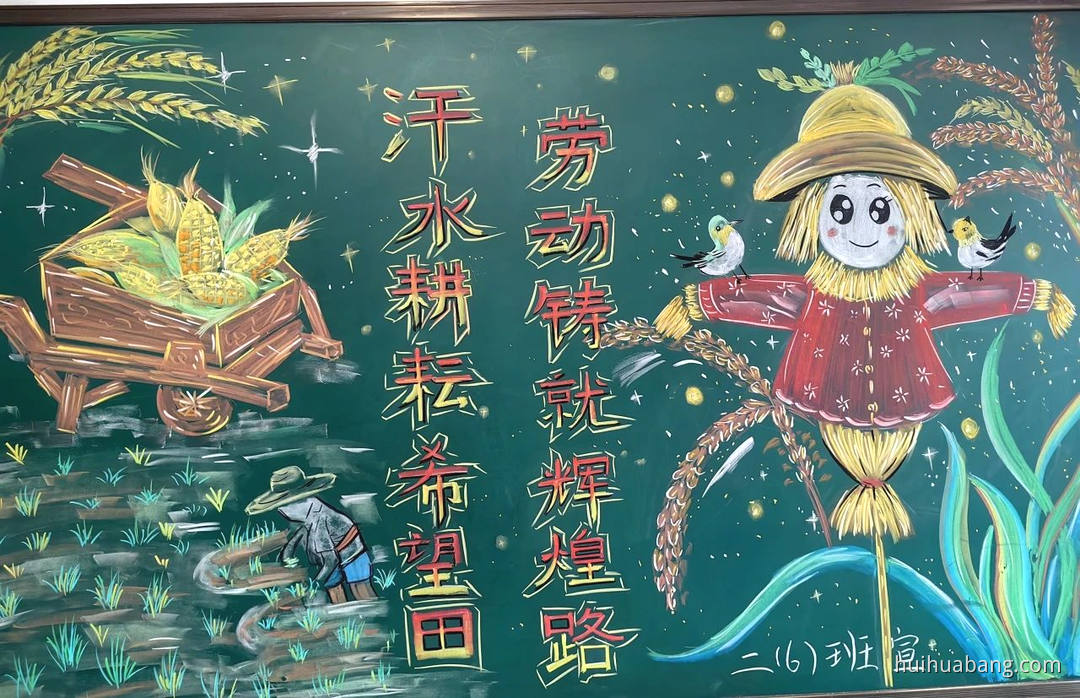 劳动铸就辉煌路
汗水耕耘希望田
二(6)班 宣
huihuabang.com